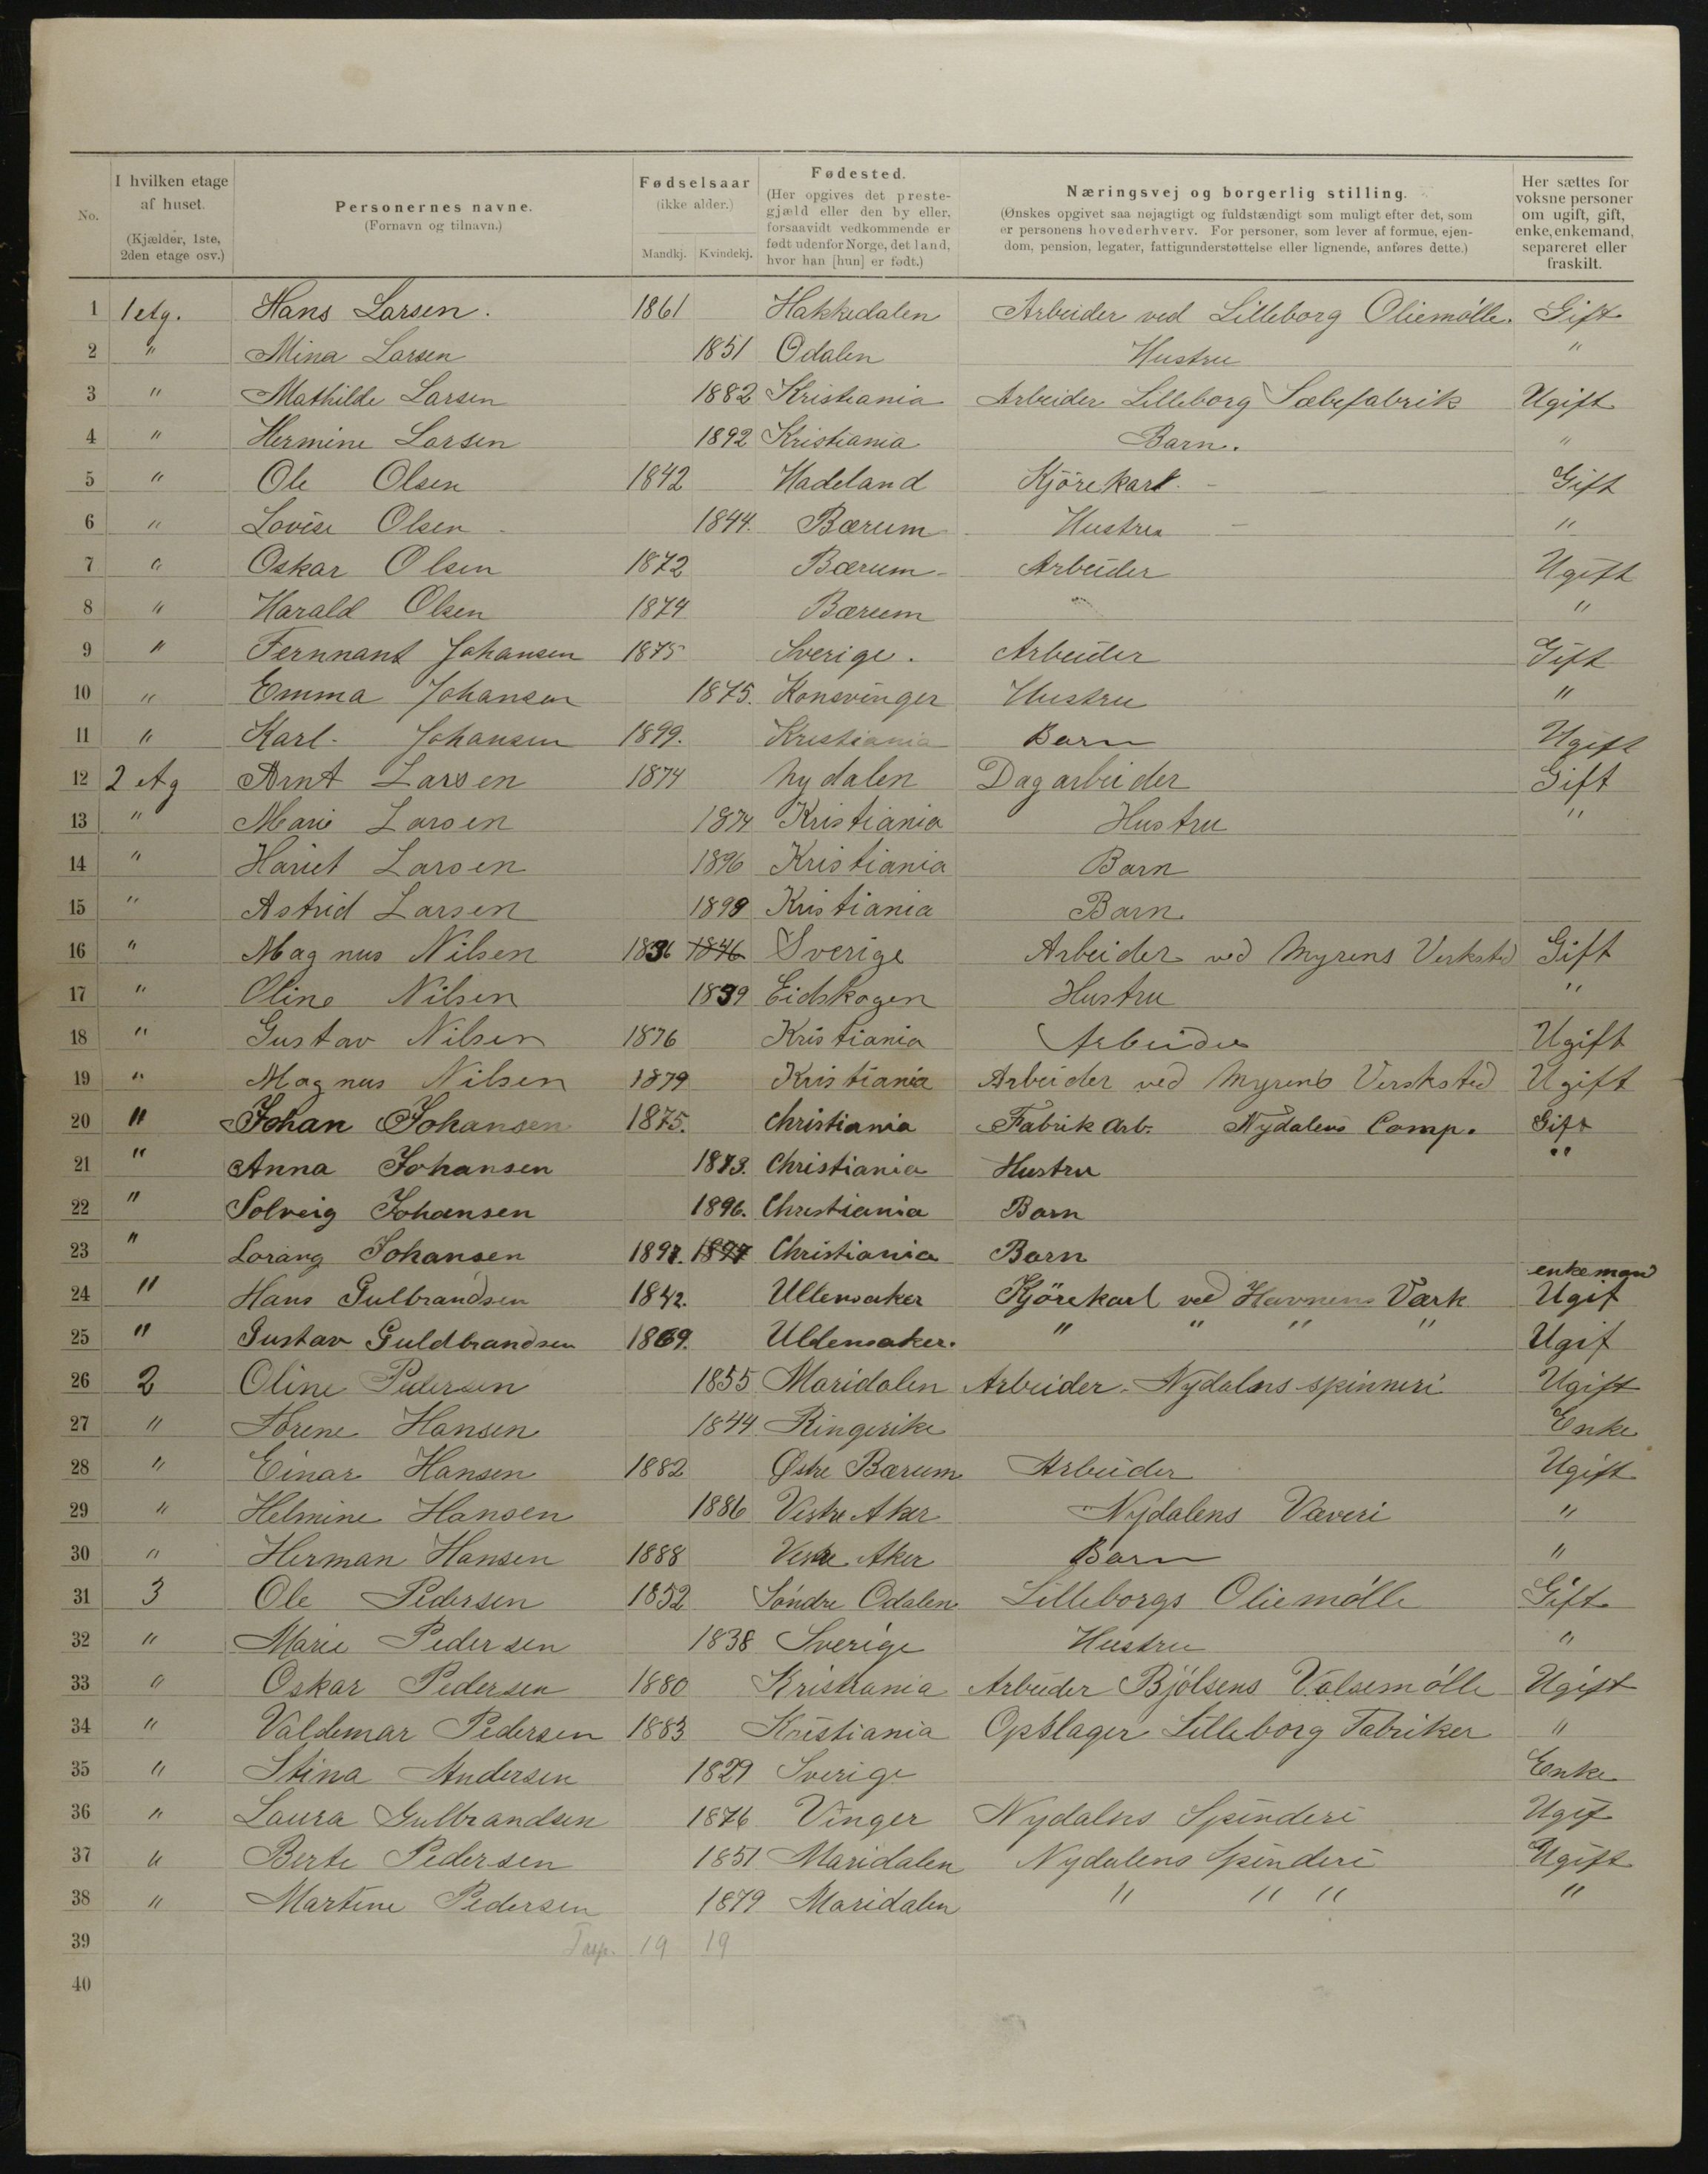 No.
I hvilken etage
af huset.
(Kjælder, 1ste,
2den etage osv.)
Personernes navne.
(Fornavn og tilnavn.)
Fødselsaar
(ikke alder.)
Mandkj. Kvindekj.
Fødested.
(Her opgives det preste-
gjæld eller den by eller,
forsaavidt vedkommende er
født udenfor Norge, det land,
hvor han [hun] er født.)
Næringsvej og borgerlig stilling.
(Ønskes opgivet saa nøjagtigt og fuldstændigt som muligt efter det, som
er personens hovederhverv. For personer, som lever af formue, ejen-
dom, pension, legater, fattigunderstøttelse eller lignende, anføres dette.)
Her sættes for
voksne personer
om ugift, gift,
enke, enkemand,
separeret eller
fraskilt.
1 1 etg. Hans Larsen. 1861 Hakkedalen Arbeider ved Lilleborg Oliemølle. Gift
2 " Mina Larsen 1851 Odalen Hustru "
3 " Mathilde Larsen 1882 Kristiania Arbeider Lilleborg Sæbefabrik Ugift
4 " Hermine Larsen 1892 Kristiania Barn. "
5 " Ole Olsen 1842 Hadeland Kjörekarl - Gift
6 " Lovise Olsen 1844. Bærum Hustru - "
7 " Oskar Olsen 1872 Bærum Arbeider Ugift
8 " Harald Olsen 1874 Bærum "
9 " Fernnant Johansen 1875 Sverige. Arbeider Gift
10 " Emma Johansen 1875. Konsvinger Hustru "
11 " Karl Johansen 1899. Kristiania Barn Ugift
12 2 etg Arnt Larsen 1874 Nydalen Dagarbeider Gift
13 " Marie Larsen 1874 Kristiania Hustru "
14 " Hariet Larsen 1896 Kristiania Barn
15 " Astrid Larsen 1899 Kristiania Barn.
16 " Magnus Nilsen 1836 1846 Sverige Arbeider ved Myrens Verksted Gift
17 " Oline Nilsen 1839 Eidskogen Hustru "
18 " Gustav Nilsen 1876 Kristiania Arbeider Ugift
19 " Magnus Nilsen 1879 Kristiania Arbeider ved Myrens Versksted Ugift
20 " Johan Johansen 1875. Christiania Fabrik Arb. Nydalens Comp. Gift
21 " Anna Johansen 1873. Christiania Hustru "
22 " Solveig Johansen 1896. Christiania Barn
23 " Lorang Johansen 1897. 1897 Christiania Barn
enkemand
24 " Hans Gulbrandsen 1842. Ullensaker Kjörekarl ved Havnens Værk Ugif
25 " Gustav Guldbrandsen 1869. Ullensaker. " " " " Ugif
26 2 Oline Pedersen 1855 Maridalen Arbeider Nydalns spinneri Ugift
27 " Torene Hansen 1844 Ringerike Enke
28 " Einar Hansen 1882 Østre Bærum Arbeider Ugift
29 " Helmine Hansen 1886 Vestre Aker Nydalens Væveri "
30 " Herman Hansen 1888 Vestre Aker Barn "
31 3 Ole Pedersen 1852 Söndre Odalen Lilleborgs Oliemølle Gift
32 " Marie Pedersen 1838 Sverige Hustru "
33 " Oskar Pedersen 1880 Kristiania Arbeider Bjölsens Valsemølle Ugift
34 " Valdemar Pedersen 1883 Kristiania Opslager Lilleborg Fabriker "
35 " Stina Andersen 1829 Sverige Enke
36 " Laura Gulbrandsen 1876 Vinger Nydalns Spinderi Ugif
37 " Berte Pedersen 1851 Maridalen Nydalens Spinderi Ugift
38 " Martine Pedersen 1879 Maridalen " " " "
39 19 19
40